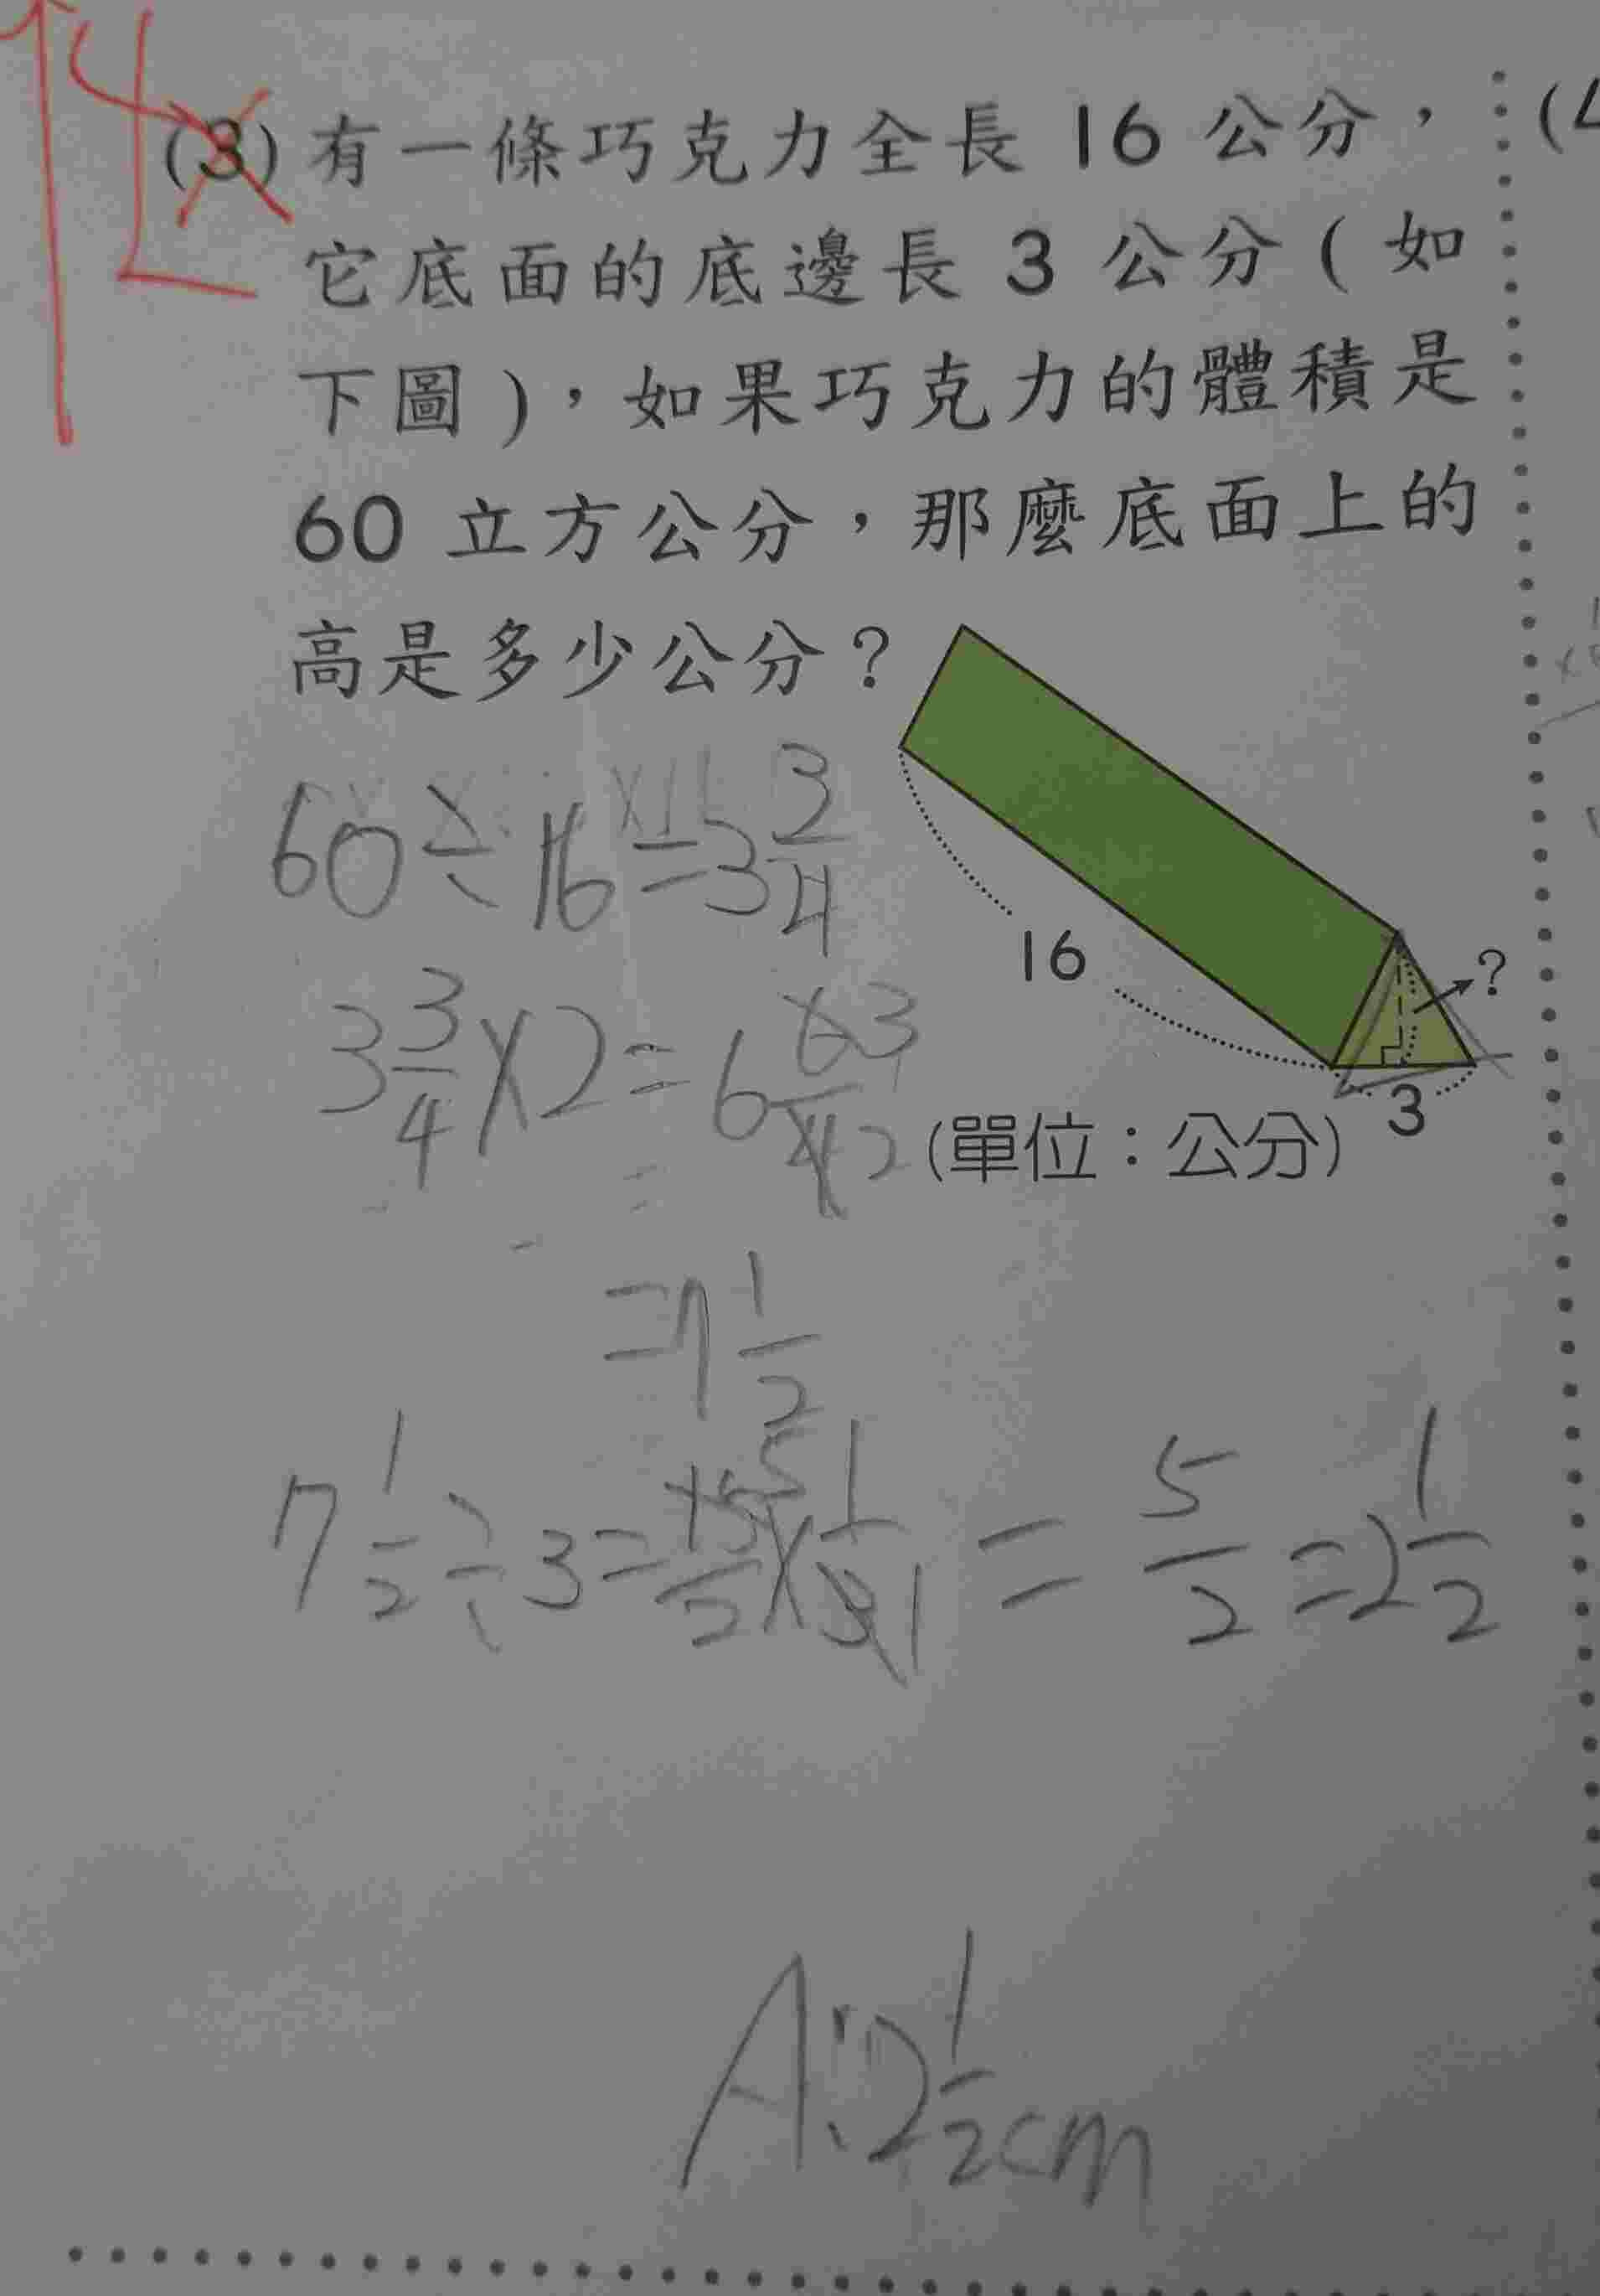 (3) 有一條巧克力全長 16 公分，
它底面的底邊長 3 公分 ( 如
下圖 )，如果巧克力的體積是
60 立方公分，那麼底面上的
高是多少公分？
16
?
3
(單位：公分)
60÷16=3 3/4
3 3/4×2=6 6/4 3/2
=7 1/2
7 1/2÷3=15/2×1/3=5/2=2 1/2
5
1
A:2 1/2cm